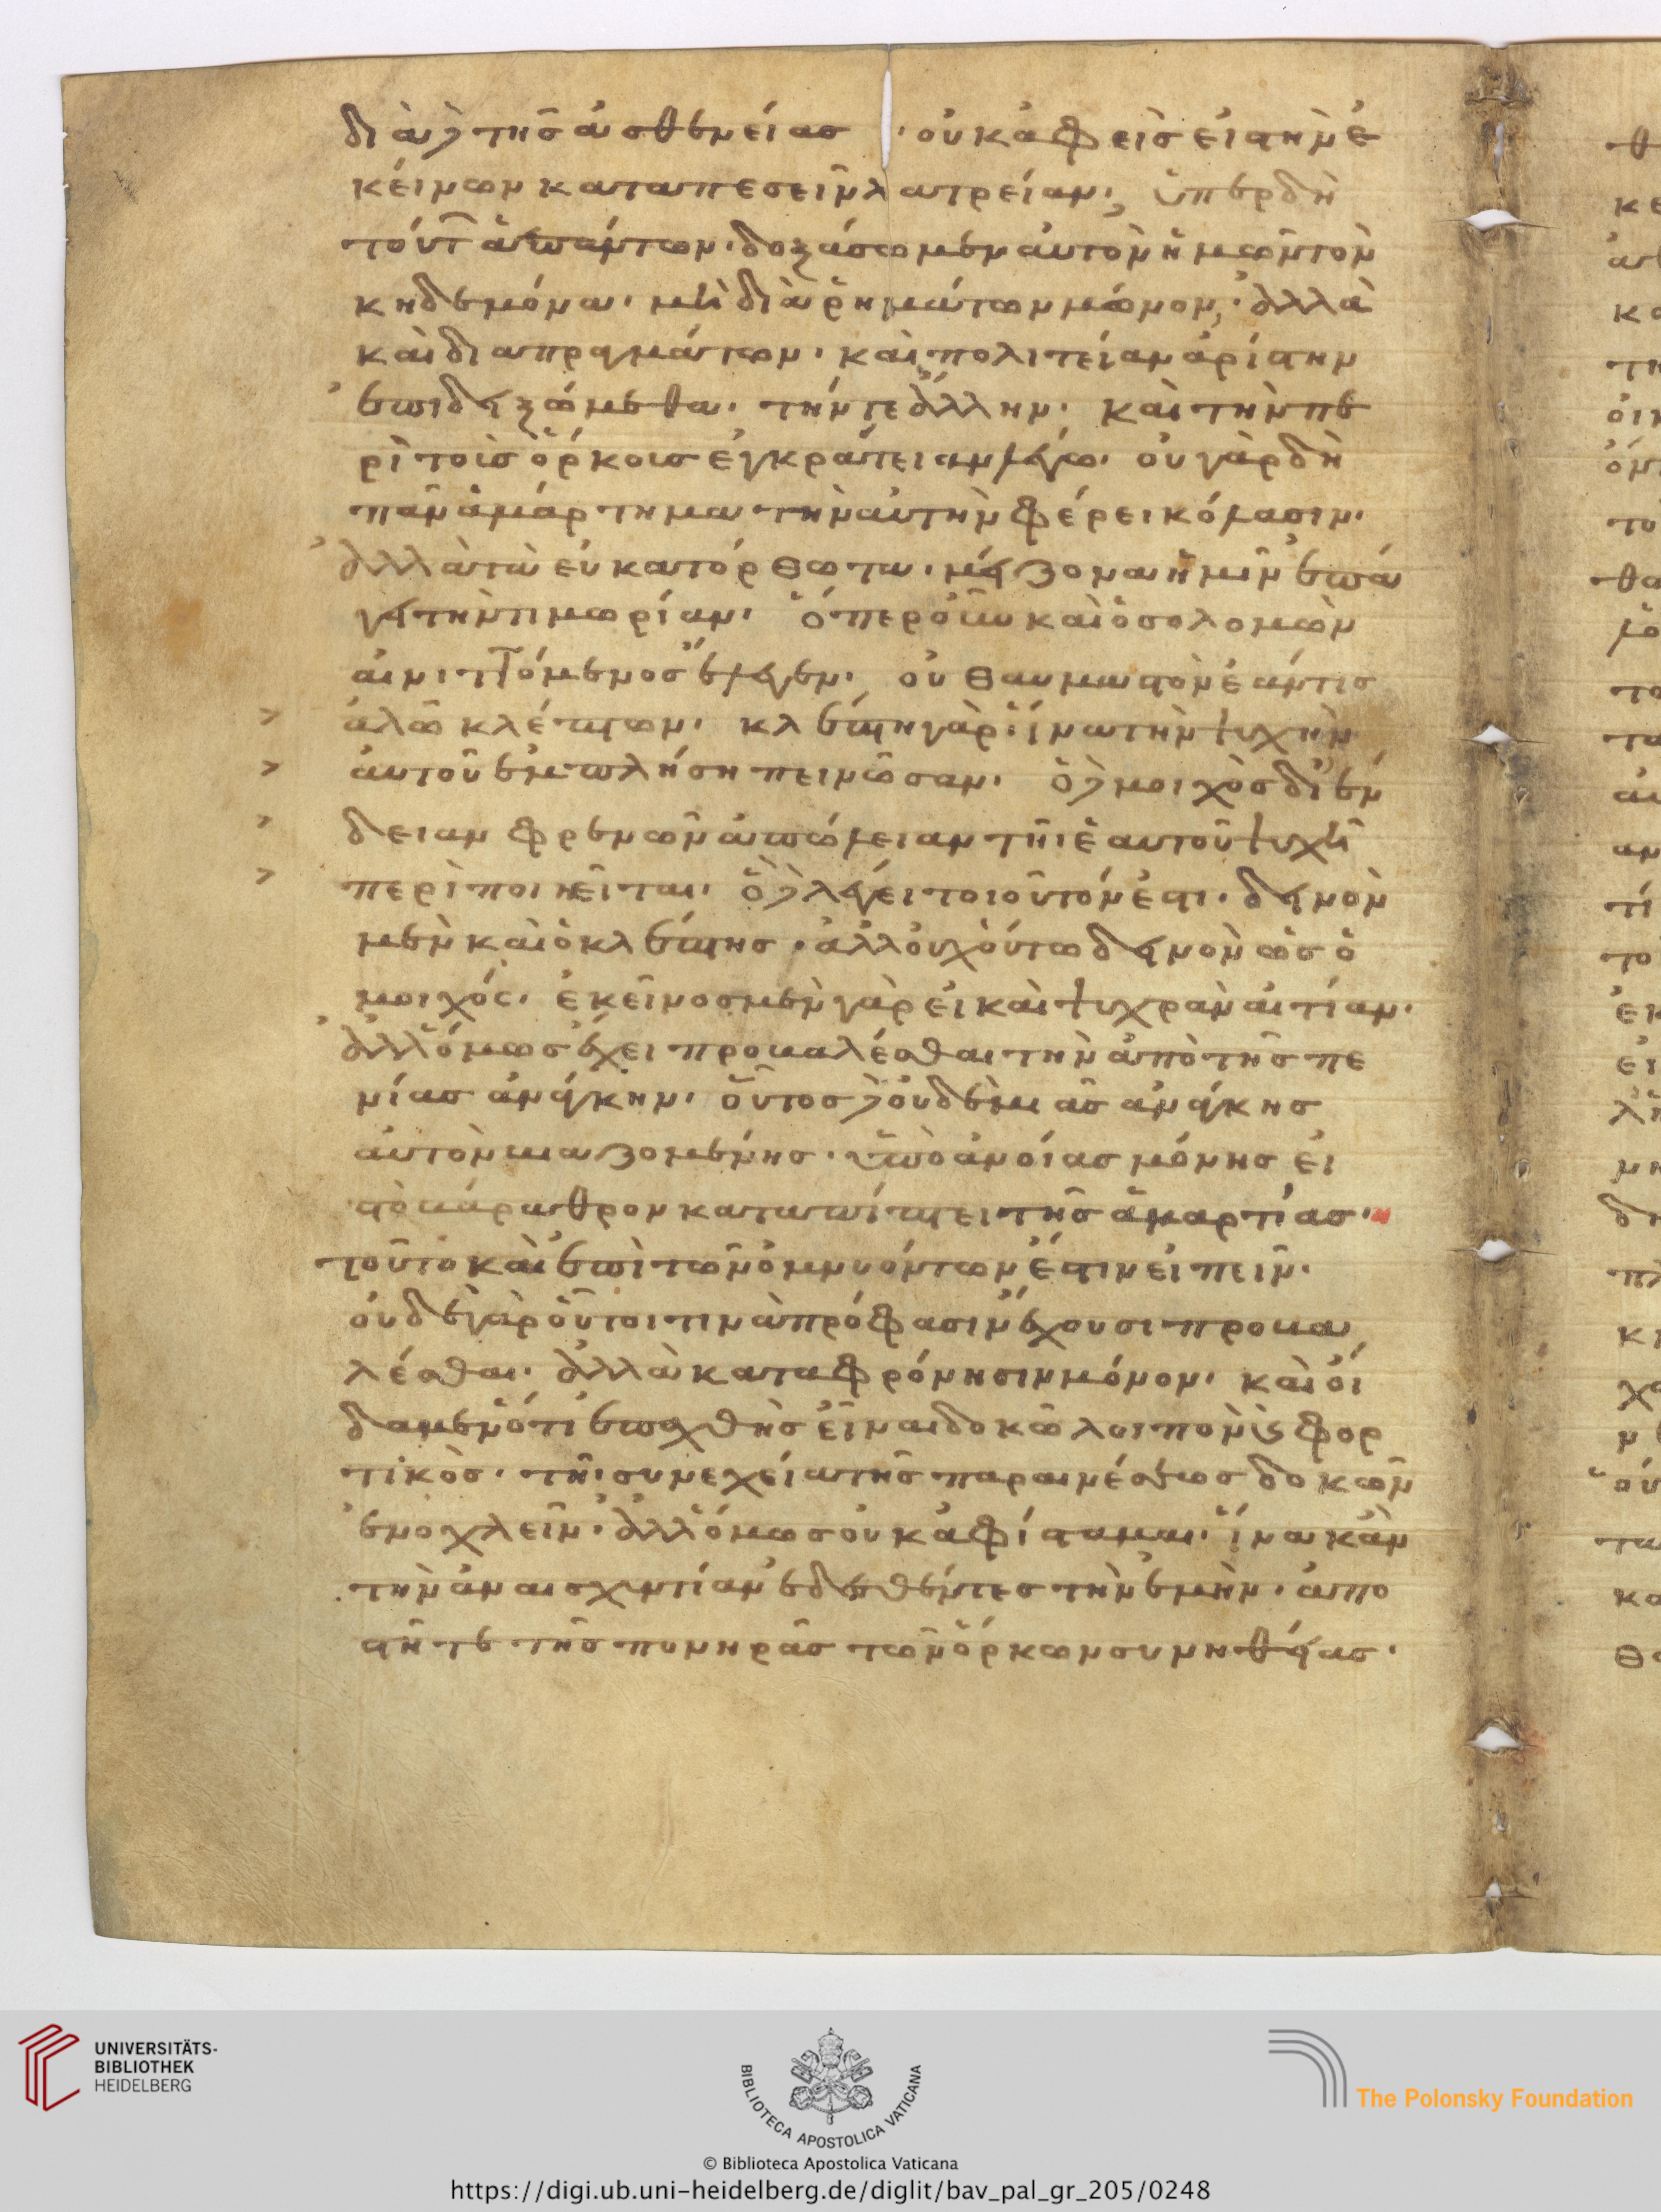 διὰ δὲ τῆς ἀσθενείας · οὐκ ἀφεὶς εἰς τὴν ἐ
κείνων καταπεσεῖν λατρείαν· ὑπὲρ δὴ
τούτων ἁπάντων· δοξάσωμεν αὐτὸν ἡμῶν τὸν
κηδεμόνα· μὴ διὰ ῥημάτων μόνον, ἀλλὰ
καὶ διαπραγμάτων· καὶ πολιτείαν ἀρίστην
ἐπιδειξώμεθα· τήν τε ἄλλην· καὶ τὴν πε
ρὶ τοὺς ὅρκους ἐγκράτειαν λέγω· οὐ γὰρ δὴ
πᾶν ἁμάρτημα τὴν αὐτὴν φέρει κόλασιν·
ἀλλὰ τὰ εὐκατόρθωτα· μείζονα ἡμῖν ἐπά
γει τὴν τιμωρίαν· ὅπερ οὖν καὶ ὁ σολομὼν
αἰνιττόμενος ἔλεγεν· οὐ θαυμαστὸν ἐάν τις
ἁλῶ κλέπτων· κλέπτη γὰρ ἵνα τὴν ψυχὴν
αὐτοῦ ἐμπλήση πεινῶσαν· ὁ δὲ μοιχὸς δι' ἔν
δειαν φρενῶν ἀπώλειαν τῆι ἑαυτοῦ ψυχῆ
περιποιεῖται· ὃ δὲ λέγει τοιοῦτόν ἐστι· δεινὸν
μὲν καὶ ὁ κλέπτης· ἀλλ' οὐχ οὕτω δεινὸν ὡς ὁ
μοιχός· ἐκεῖνος μὲν γὰρ εἰ καὶ ψυχρὰν αἰτίαν·
ἀλλ' ὅμως ἔχει προβαλέσθαι τὴν ἀπὸ τῆς πε
νίας ἀνάγκην· οὗτος δὲ οὐδεμιᾶς ἀνάγκης
αὐτὸν βιαζομένης· ὑπὸ ἀνοίας μόνης εἰ
ς τὸ βάραθρον καταπίπτει τῆς ἁμαρτίας·
τοῦτο καὶ ἐπὶ τῶν ὀμνυόντων ἔστιν εἰπεῖν·
οὐδὲ γὰρ οὗτοι τινὰ πρόφασιν ἔχουσι προβα
λέσθαι· ἀλλὰ καταφρόνησιν μόνον· καὶ οἶ
δα μὲν ὅτι ἐπαχθὴς εἶναι δοκῶ λοιπὸν καὶ φορ
τικὸς· τῆι συνεχείᾳ τῆς παραινέσεως δοκῶν
ἐνοχλεῖν· ἀλλ' ὅμως οὐκ ἀφίσταμαι· ἵνα κἂν
τὴν ἀναισχυντίαν αἰδεσθέντες τὴν ἐμὴν· ἀπο
στῆτε τῆς πονηρᾶς τῶν ὅρκων συνηθείας·
UNIVERSITÄTS-
BIBLIOTHEK
HEIDELBERG
BIBLIOTECA APOSTOLICA VATICANA
The Polonsky Foundation
© Biblioteca Apostolica Vaticana
https://digi.ub.uni-heidelberg.de/diglit/bav_pal_gr_205/0248